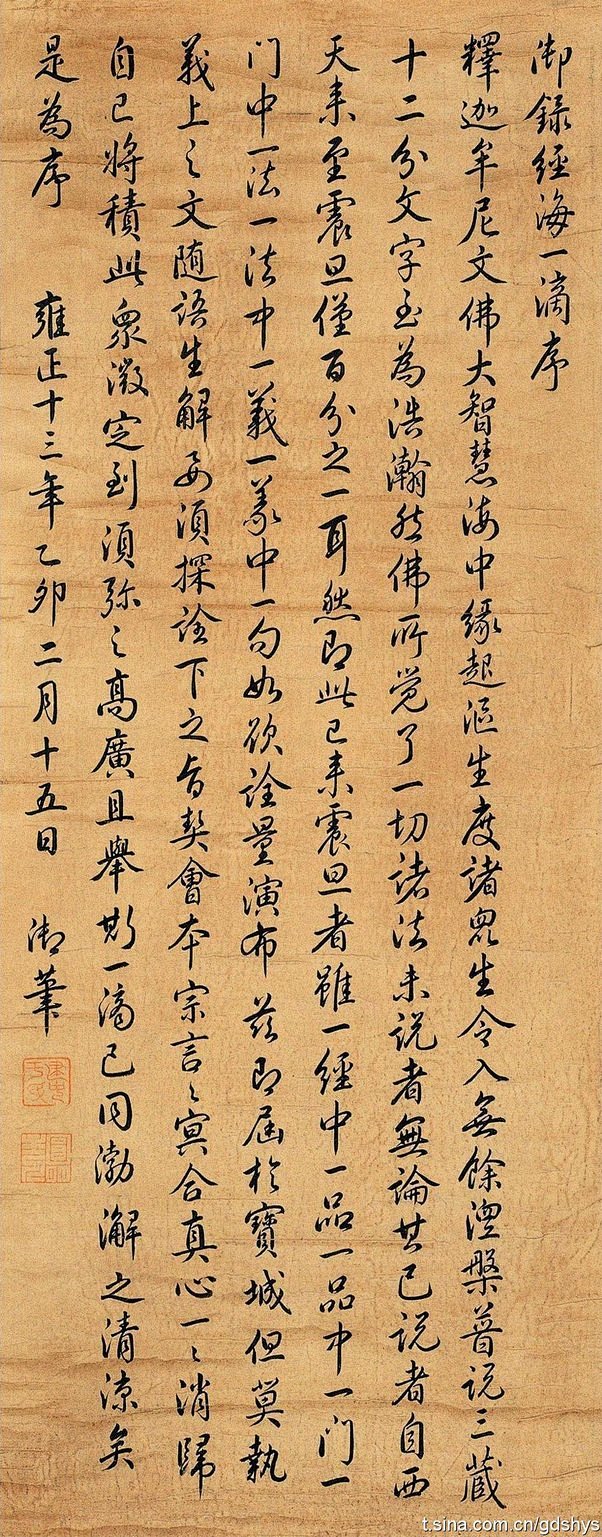 御錄經海一滴序
釋迦牟尼文佛大智慧海中緣起漚生度諸眾生令入無餘涅槃普说三藏
十二分文字至為浩瀚然佛所觉了一切諸法未说者無論其已说者自西
天来至震旦僅百分之一耳然即此已来震旦者雖一經中一品一品中一门一
门中一法一法中一義一義中一句如欲詮量演布兹即屆於寶城但莫執
義上之文随語生解要須探詮下之旨契會本宗言々冥合真心一々消歸
自己將積此眾微定到須弥之高廣且舉斯一滴已同渤澥之清涼矣
是為序 雍正十三年乙卯二月十五日 御筆
t.sina.com.cn/gdshys